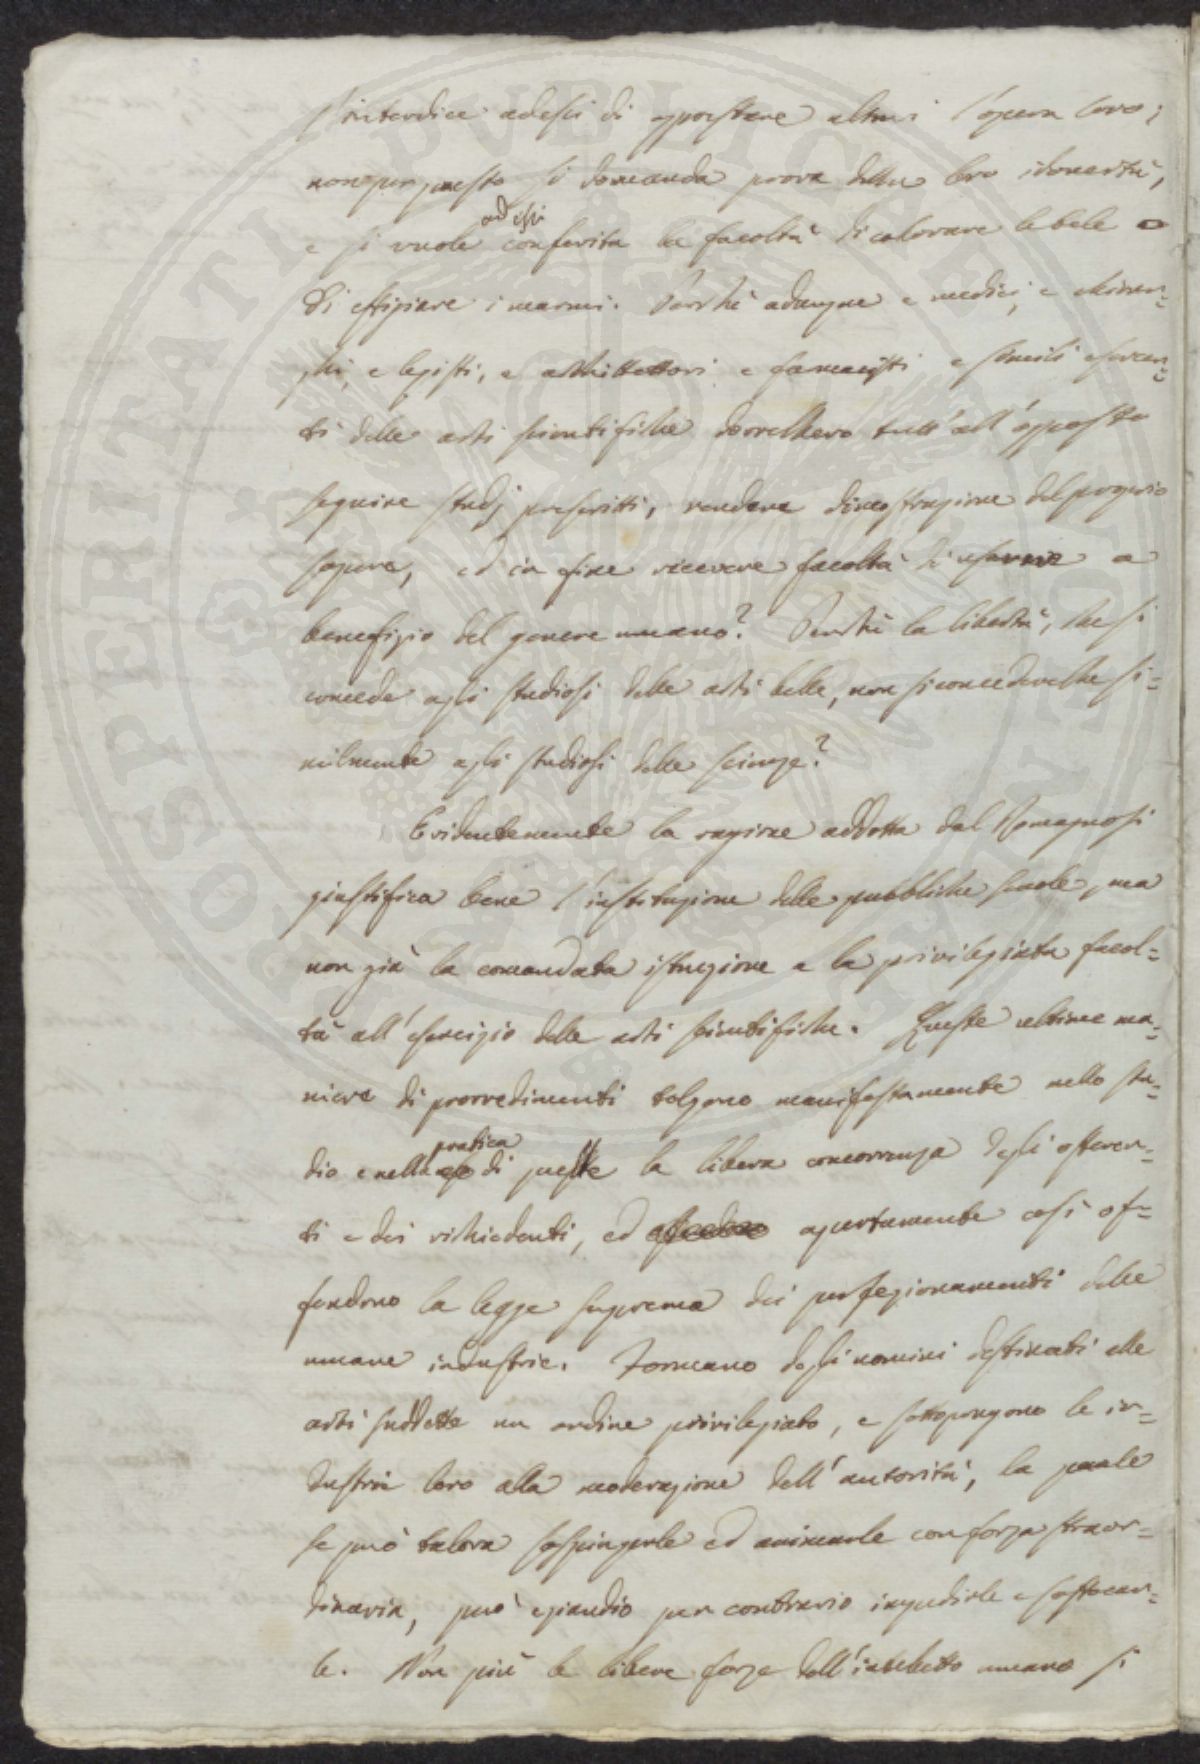 s'interdice ad essi di apprestare altrui l'opera loro;
non per questo si domanda prova della loro idoneità,
ad essi
e si vuole conferita la facoltà di colorare le tele o
di effigiare i marmi. Perchè adunque e medici, e chirur=
ghi, e legisti, e architettori e farmacisti e simili esercen=
ti delle arti scientifiche dovrebbero tutt'all'opposto
seguire studj prescritti, rendere dimostrazione del proprio
sapere, ed in fine ricevere facoltà di usarne a
benefizio del genere umano? Perchè la libertà, che si
concede agli studiosi delle arti belle, non si concederebbe si=
milmente agli studiosi delle scienze?
Evidentemente la ragione addotta dal Romagnosi
giustifica bene l'instituzione delle pubbliche scuole, ma
non già la comandata istruzione e la privilegiata facol=
tà all'esercizio delle arti scientifiche. Queste ultime ma=
niere di provvedimenti tolgono manifestamente nello stu=
pratica
dio e nella di queste la libera concorrenza degli offeren=
ti e dei richiedenti, ed apertamente così of=
fendono la legge suprema dei perfezionamenti delle
umane industrie. Formano degli uomini destinati alle
arti suddette un ordine privilegiato, e sottopongono le in=
dustrie loro alla moderazione dell'autorità, la quale
se può talora sospingerle ed animarle con forza straor=
dinaria, può eziandio per contrario impedirle e soffocar=
le. Non più le libere forze dell'intelletto umano si